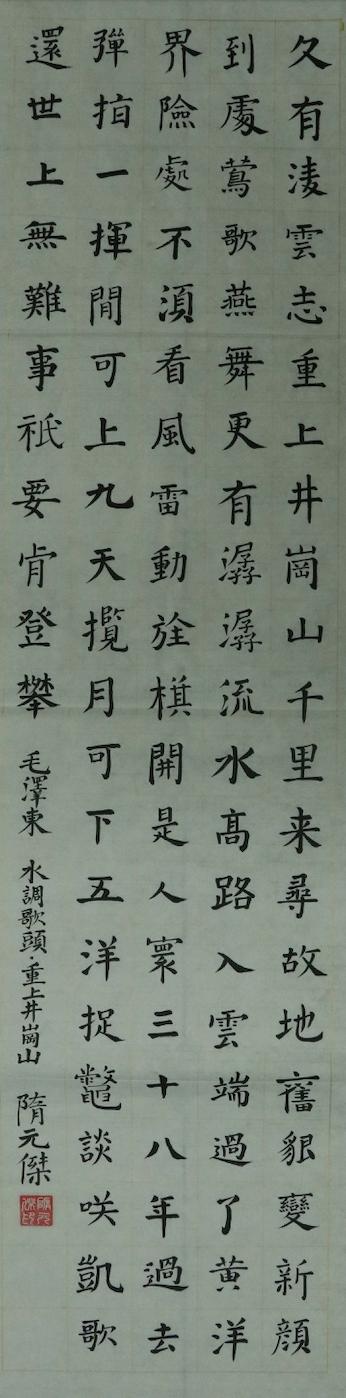 久有凌雲志重上井崗山千里来尋故地舊貌變新顔
到處鶯歌燕舞更有潺潺流水髙路入雲端過了黄洋
界險處不須看風雷動旌旗開是人寰三十八年過去
彈指一揮間可上九天攬月可下五洋捉鼈談咲凱歌
還世上無難事祇要肯登攀
毛澤東 水調歌頭·重上井崗山
隋元傑